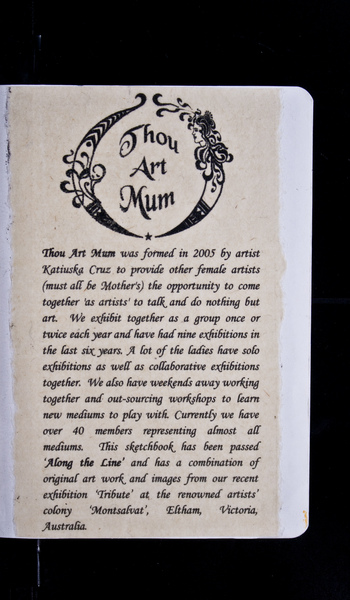 Thou
Art
Mum
Thou Art Mum was formed in 2005 by artist
Katiuska Cruz to provide other female artists
(must all be Mother's) the opportunity to come
together 'as artists' to talk and do nothing but
art. We exhibit together as a group once or
twice each year and have had nine exhibitions in
the last six years. A lot of the ladies have solo
exhibitions as well as collaborative exhibitions
together. We also have weekends away working
together and out-sourcing workshops to learn
new mediums to play with. Currently we have
over 40 members representing almost all
mediums. This sketchbook has been passed
'Along the Line' and has a combination of
original art work and images from our recent
exhibition 'Tribute' at the renowned artists'
colony 'Montsalvat', Eltham, Victoria,
Australia.